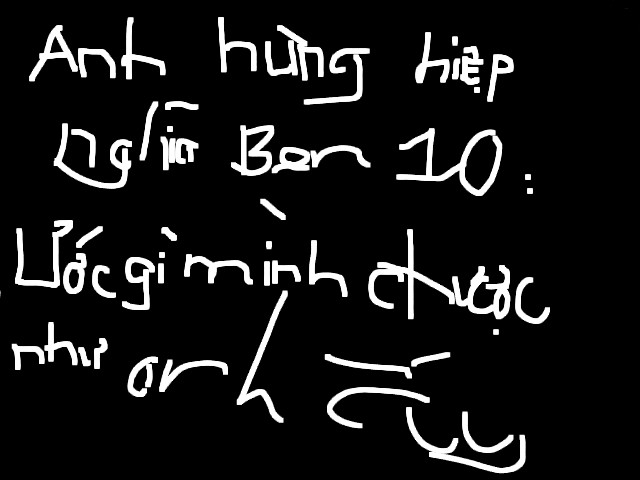 Anh hùng hiệp
nghĩa Ben 10:
Ước gì mình được
như anh ấy